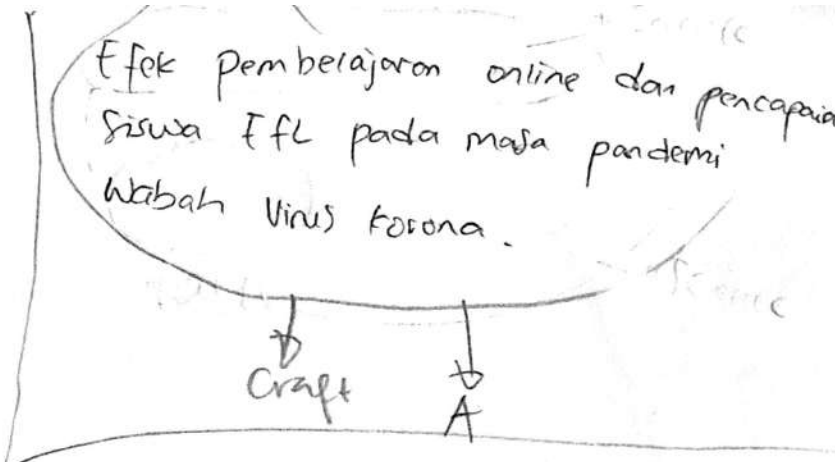 Efek pembelajaran online dan pencapaia
Siswa EFL pada masa pandemi
Wabah Virus Korona.
Craft
A